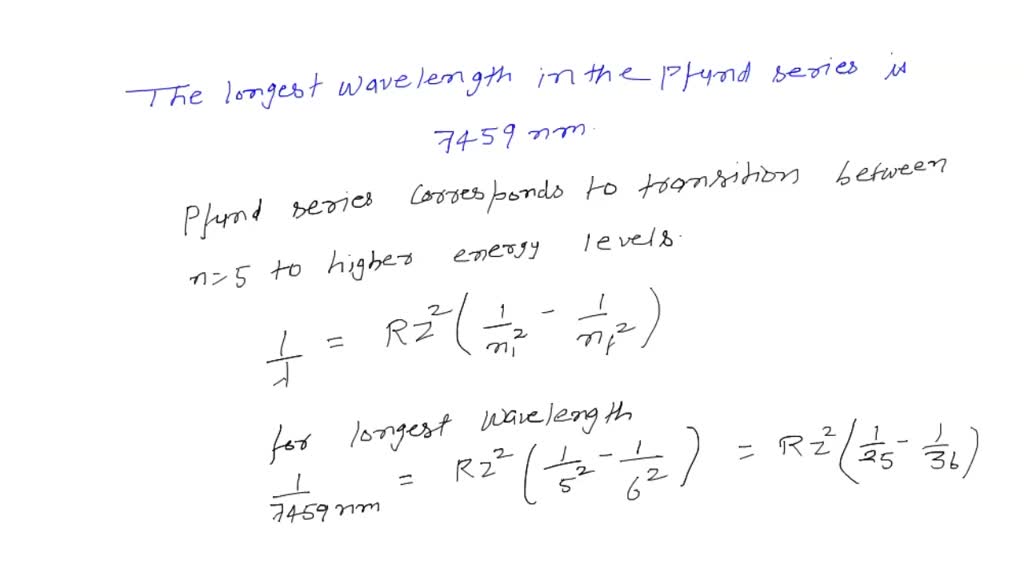 The longest wavelength in the Pfund series is
7459 nm.
Pfund series corresponds to transition between
n=5 to higher energy levels.
1/λ = RZ²(1/n₁² - 1/n_f²)
for longest wavelength
1/7459 nm = RZ²(1/5² - 1/6²) = RZ²(1/25 - 1/36)